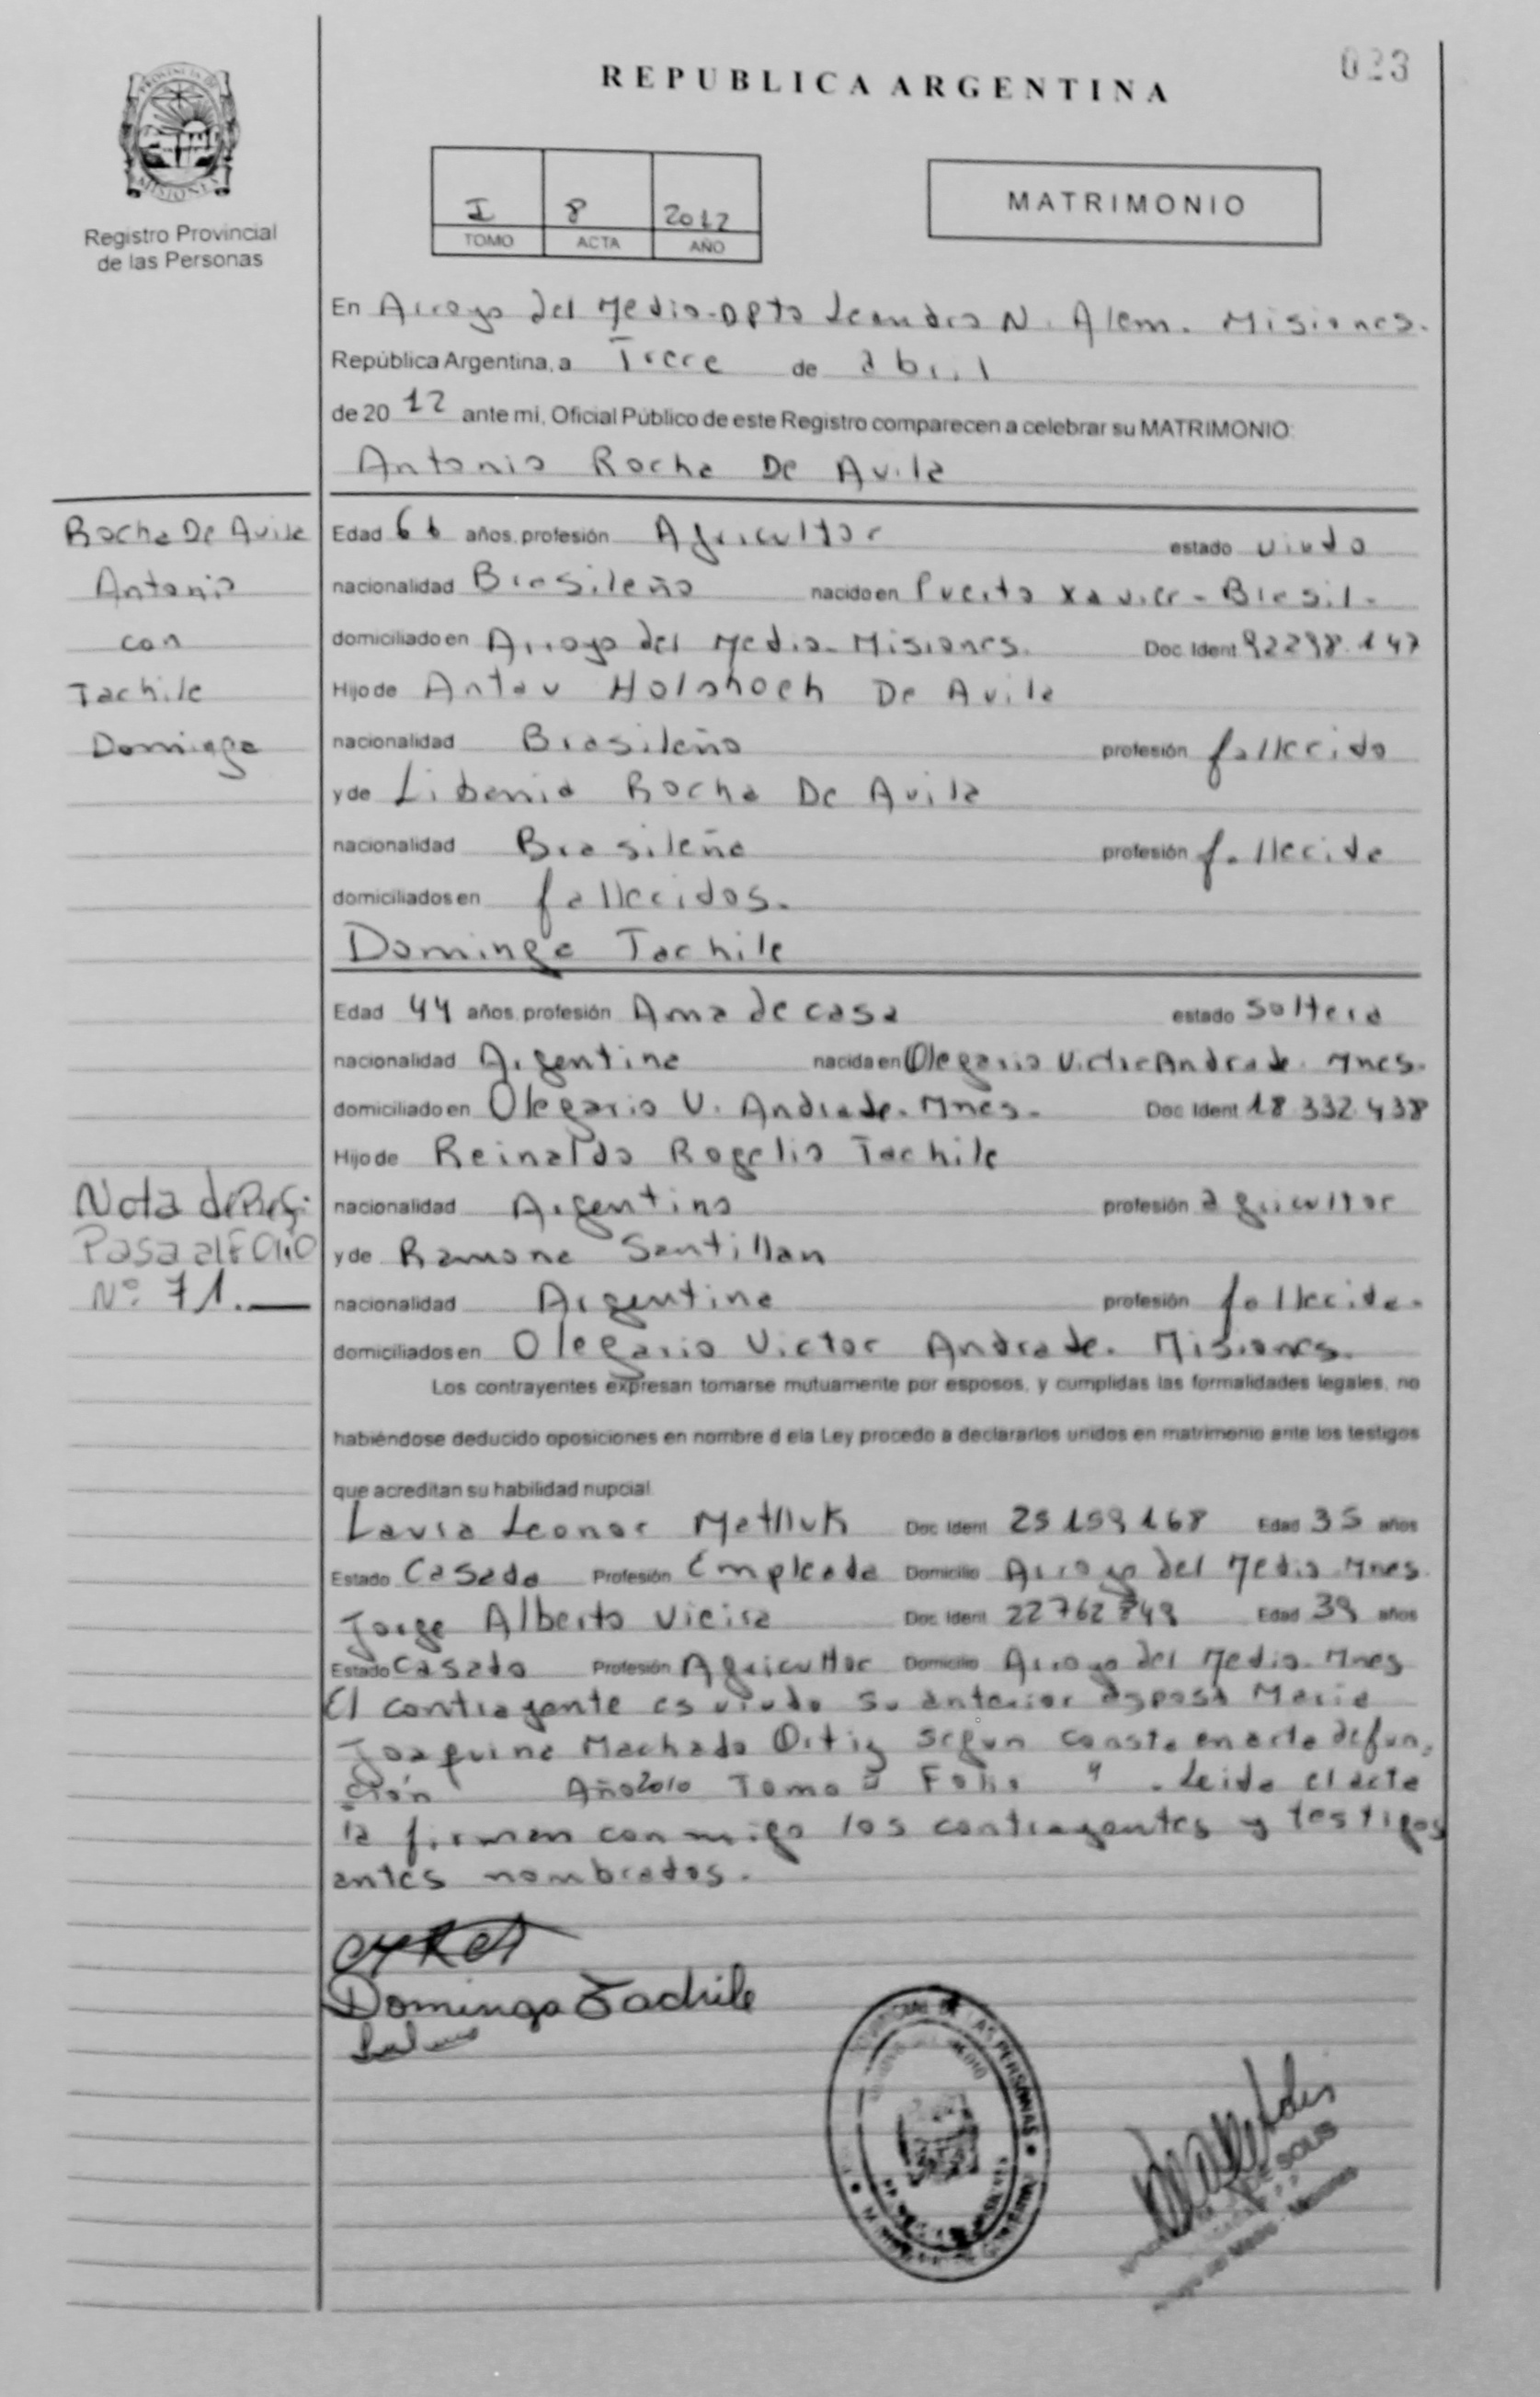 023
REPUBLICA ARGENTINA
PROVINCIA DE
MISIONES
Registro Provincial
de las Personas
I 8 2012
TOMO ACTA AÑO
MATRIMONIO
En Arroyo del Medio-Dpto Leandro N. Alem. Misiones.
República Argentina, a Trece de abril
de 20 12 ante mi, Oficial Público de este Registro comparecen a celebrar su MATRIMONIO:
Antonio Rocha De Avila
Rocha De Avila
Antonio
con
Tachile
Dominga
Edad 66 años, profesión Agricultor estado viudo
nacionalidad Brasileño nacido en Puerto Xavier - Brasil-
domiciliado en Arroyo del Medio- Misiones. Doc. Ident 92298.147
Hijo de Antau Holshoch De Avila
nacionalidad Brasileño profesión fallecido
y de Libania Rocha De Avila
nacionalidad Brasileña profesión fallecida
domiciliados en fallecidos.
Dominga Tachile
Edad 44 años, profesión Ama de casa estado Soltera
nacionalidad Argentina nacida en Olegario Victor Andrade. Mnes.
domiciliado en Olegario V. Andrade. Mnes- Doc. Ident 18.332.438
Hijo de Reinaldo Rogelio Tachile
nacionalidad Argentino profesión agricultor
y de Ramona Santillan
nacionalidad Argentina profesión fallecida.
domiciliados en Olegario Victor Andrade. Misiones.
Nota de Refe:
Pasa al FOLIO
Nº: 71.
Los contrayentes expresan tomarse mutuamente por esposos, y cumplidas las formalidades legales, no
habiéndose deducido oposiciones en nombre d ela Ley procedo a declararlos unidos en matrimonio ante los testigos
que acreditan su habilidad nupcial.
Laura Leonor Metliuk Doc. Ident 25159168 Edad 35 años
Estado Casada Profesión Empleada Domicilio Arroyo del Medio Mnes.
Jorge Alberto Vieira Doc. Ident 22762749 Edad 39 años
Estado Casado Profesión Agricultor Domicilio Arroyo del Medio. Mnes
El contrayente es viudo su anterior esposa Maria
Joaquina Machado Ortiz segun consta en acta defun,
ción Año 2010 Tomo Folio . Leida el acta
la firman con migo los contrayentes y testigos
antes nombrados.
Dominga Tachile
PROVINCIAL DE LAS PERSONAS
DE SOLIS